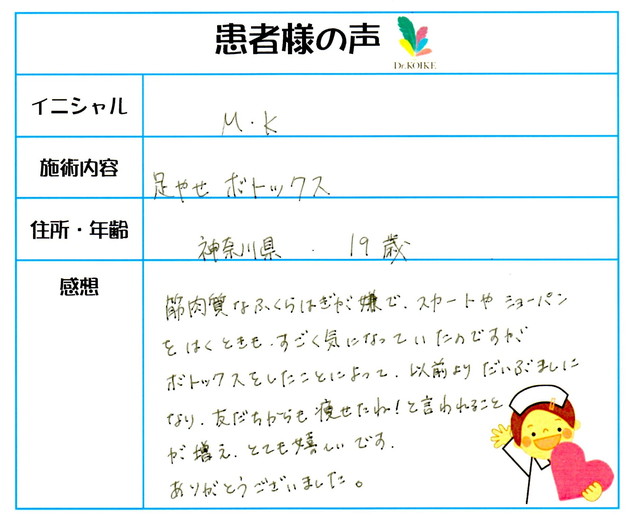 患者様の声
Dr.KOIKE
イニシャル
M・K
施術内容
足やせ ボトックス
住所・年齢
神奈川県 . 19歳
感想
筋肉質なふくらはぎが嫌で、スカートやショーパン
をはくときも、すごく気になっていたのですが
ボトックスをしたことによって、以前よりだいぶましに
なり、友だちからも痩せたね!と言われること
が増え、とても嬉しいです。
ありがとうございました。